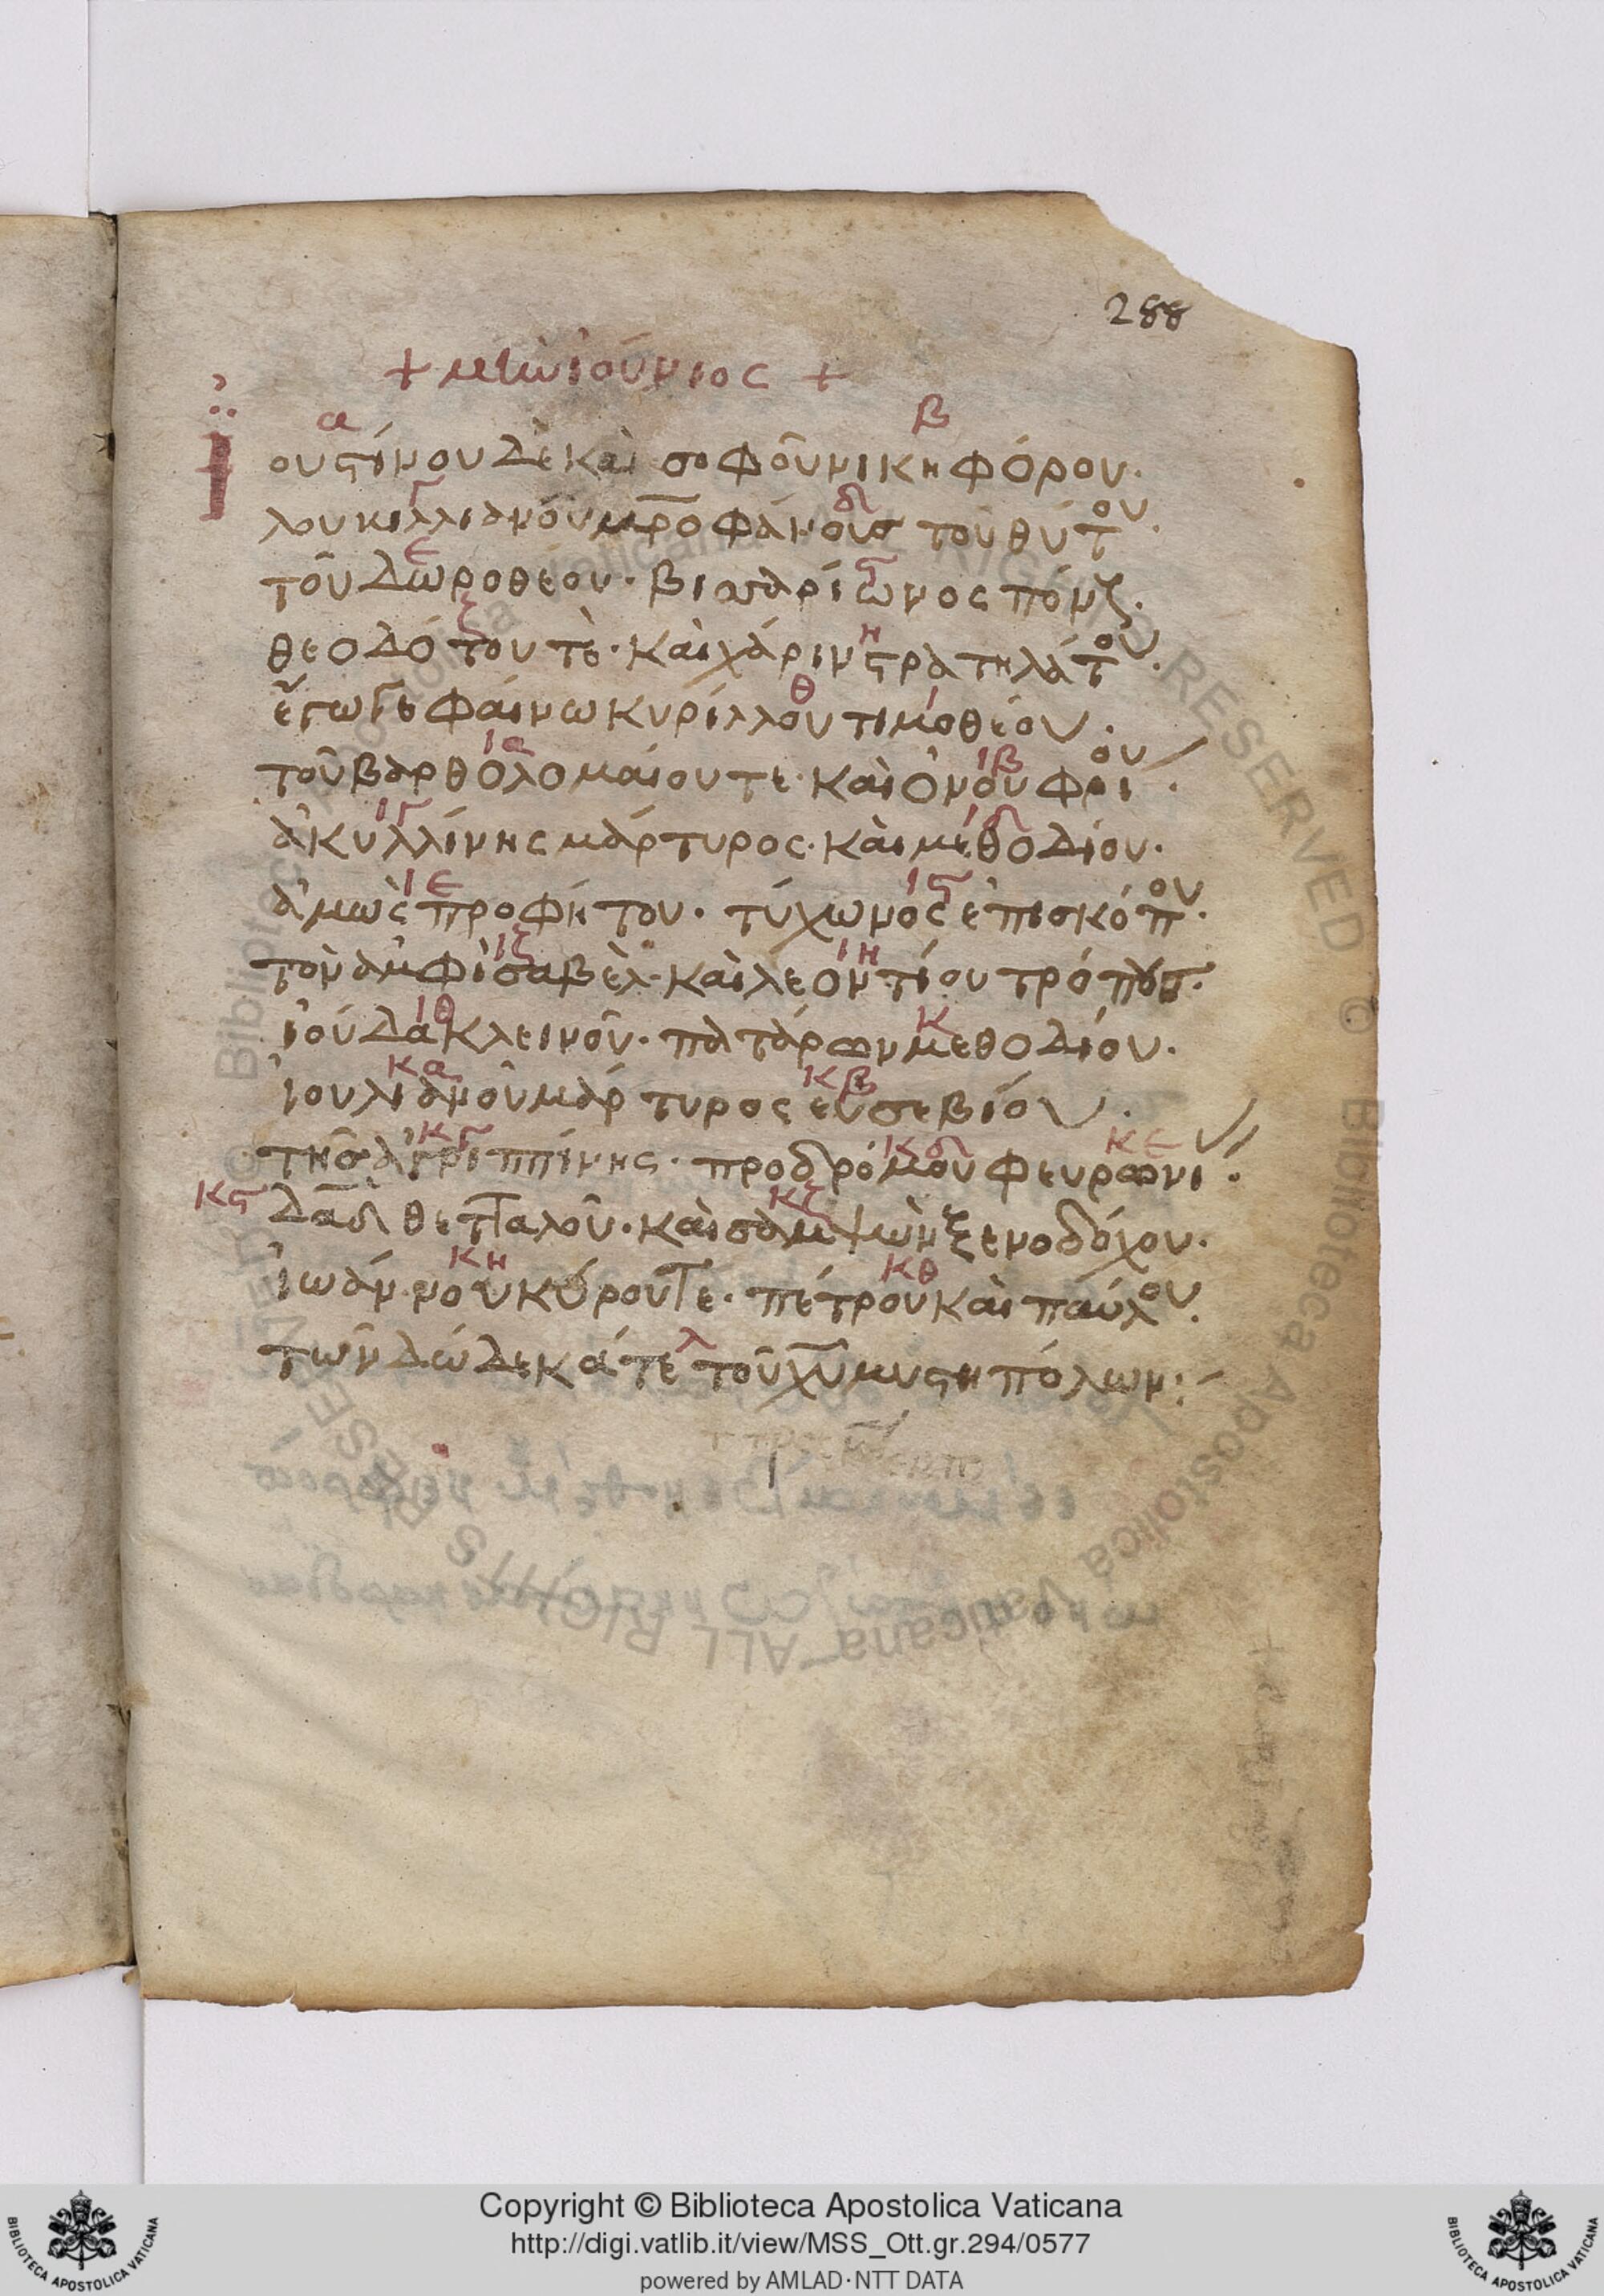 288
+ μὴν ἰούνιος +
α β
Ἰουστίνου δὲ καὶ σοφοῦ νικηφόρου.
γ δ
λουκιλλιανόυ μρο φάνους τοῦ θύτου.
ε ϛ
τοῦ δωροθέου. βισαρίωνος πόνζ.
ζ η
θεοδότου τὲ. καὶ χάριν στρατηλάτου.
θ ι
ἔγωγε φαίνω κυρίλλου τιμοθέου.
ια ιβ
τοῦ βαρθολομαίου τε. καὶ ὀνουφρίου.
ιγ ιδ
ἀκυλλίνης μάρτυρος. καὶ μεθοδίου.
ιε ιϛ
ἀμὼς προφήτου. τύχωνος ἐπισκόπου.
ιζ ιη
τὸν ἀμφὶ σαβέλ. καὶ λεοντίου τρόπους.
ιθ κ
ἰούδα κλεινοῦ. πατάρων μεθοδίου.
κα κβ
ἰουλιανοῦ μάρτυρος εὐσεβίου.
κγ κδ κε
τῆς ἀγριππίνης. προδρόμου φευρωνι.
κϛ κζ
δαδ θετταλοῦ. καὶ σαμψὼν ξενοδόχου.
κη κθ
ἰωάν.νου κύρου τε. πέτρου καὶ παύλου.
λ
τῶν δώδεκά τε τοῦ χυ μυστηπόλων:
Copyright © Biblioteca Apostolica Vaticana
http://digi.vatlib.it/view/MSS_Ott.gr.294/0577
powered by AMLAD·NTT DATA
BIBLIOTECA APOSTOLICA VATICANA
BIBLIOTECA APOSTOLICA VATICANA
© Biblioteca Apostolica Vaticana ALL RIGHTS RESERVED